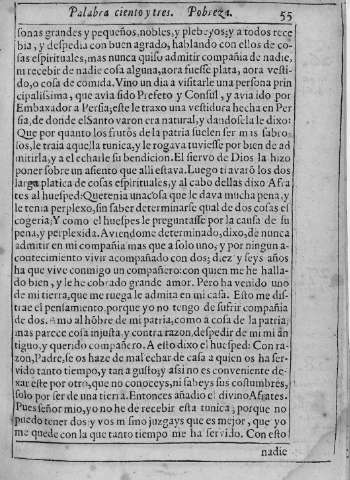 Palabra ciento y tres. Pobreza. 55
sonas grandes y pequeños, nobles, y plebeyos; y a todos rece
bia, y despedia con buen agrado, hablando con ellos de co-
sas espirituales, mas nunca quiso admitir compañia de nadie,
ni recebir de nadie cosa alguna, aora fuesse plata, aora vesti-
do, o cosa de comida. Vino un dia a visitarle una persona prin
cipalissima, que avia sido Prefeto y Consul, y avia ido por
Embaxador a Persia; este le traxo una vestidura hecha en Per
sia, de donde el Santo varon era natural, y dandosela le dixo:
Que por quanto los frutos de la patria suelen ser mas sabro-
sos, le traia aquella tunica, y le rogava tuviesse por bien de ad
mitirla, y a el echarle su bendicion. El siervo de Dios la hizo
poner sobre un asiento que alli estava. Luego travarõ los dos
larga platica de cosas espirituales, y al cabo dellas dixo Afia
tes al huesped: Que tenia una cosa que le dava mucha pena, y
le tenia perplexo, sin saber determinarse qual de dos cosas el
cogeria; Y como el huespes le preguntasse por la causa de su
pena, y perplexidad. Aviendome determinado, dixo, de nunca
admitir en mi compañia mas que a solo uno, y por ningun a-
contecimiento vivir acompañado con dos; diez y seys años
ha que vive conmigo un compañero: con quien me he halla-
do bien, y le he cobrado grande amor. Pero ha venido uno
de mi tierra, que me ruega le admita en mi casa. Esto me dis-
trae el pensamiento, porque yo no tengo de sufrir compañia
de dos. Amo al hõbre de mi patria, como a cosa de la patria;
mas parece cosa injusta, y contra razon, despedir de mi mi an
tiguo, y querido compañero. A esto dixo el huesped: Con ra-
zon, Padre, se os haze de mal echar de casa a quien os ha ser-
vido tanto tiempo, y tan a gusto; y assi no es conveniente de-
xar este por otro, que no conoceys, ni sabeys sus costumbres,
solo por ser de una tierra. Entonces añadio el divino Afiates.
Pues señor mio, yo no he de recebir esta tunica; porque no
puedo tener dos: y vos mismo juzgays que es mejor, que yo
me quede con la que tanto tiempo me ha servido. Con esto
nadie